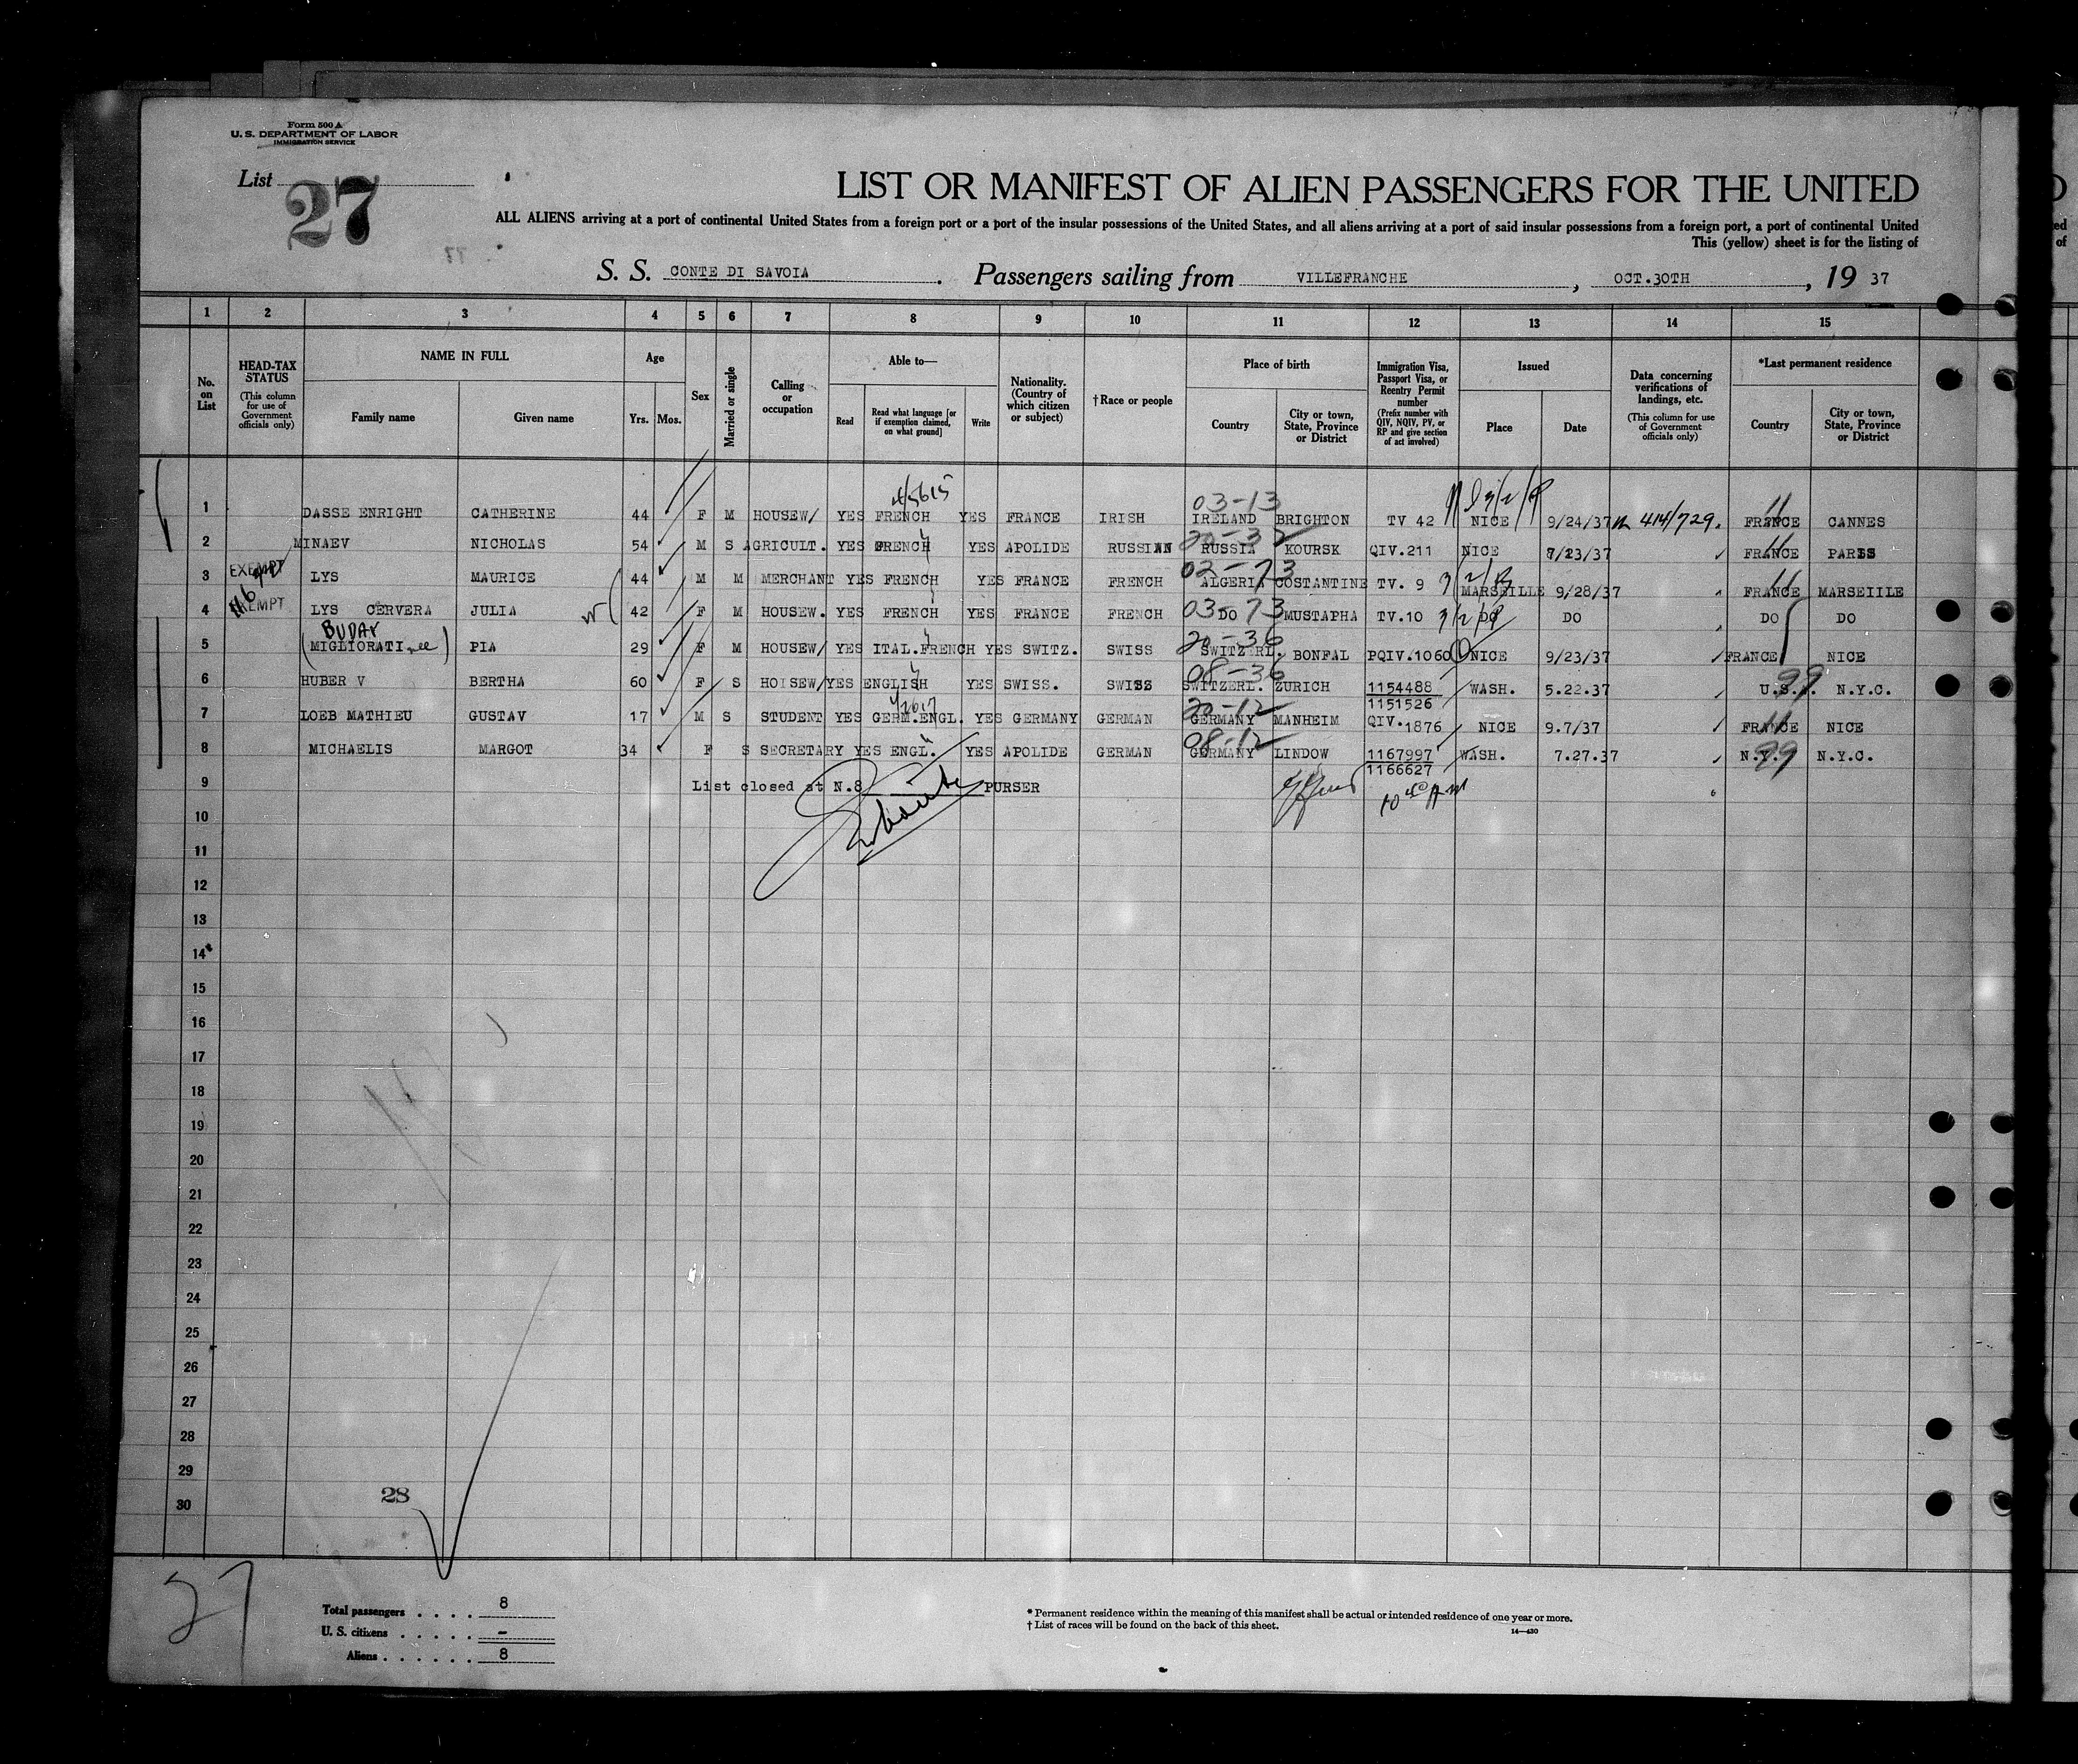 Form 500 A
U. S. DEPARTMENT OF LABOR
IMMIGRATION SERVICE
List 27
LIST OR MANIFEST OF ALIEN PASSENGERS FOR THE UNITED
ALL ALIENS arriving at a port of continental United States from a foreign port or a port of the insular possessions of the United States, and all aliens arriving at a port of said insular possessions from a foreign port, a port of continental United
This (yellow) sheet is for the listing of
S. S. CONTE DI SAVOIA. Passengers sailing from VILLEFRANCHE, OCT.30TH, 19 37
1 2 3 4 5 6 7 8 9 10 11 12 13 14 15
No. on List
HEAD-TAX STATUS (This column for use of Government officials only)
NAME IN FULL Family name Given name
Age Yrs. Mos.
Sex
Married or single
Calling or occupation
Able to— Read Read what language [or if exemption claimed, on what ground] Write
Nationality. (Country of which citizen or subject)
†Race or people
Place of birth Country City or town, State, Province or District
Immigration Visa, Passport Visa, or Reentry Permit number (Prefix number with QIV, NQIV, PV, or RP and give section of act involved)
Issued Place Date
Data concerning verifications of landings, etc. (This column for use of Government officials only)
*Last permanent residence Country City or town, State, Province or District
4/5615 03-13
1 DASSE ENRIGHT CATHERINE 44 F M HOUSEW/ YES FRENCH YES FRANCE IRISH IRELAND BRIGHTON TV 42 NICE 9/24/37 414/729. FRANCE CANNES
20-32
2 MINAEV NICHOLAS 54 M S AGRICULT. YES FRENCH YES APOLIDE RUSSIAN RUSSIA KOURSK QIV.211 NICE 9/23/37 FRANCE PARIS
02-73
3 EXEMPT LYS MAURICE 44 M M MERCHANT YES FRENCH YES FRANCE FRENCH ALGERIA COSTANTINE TV. 9 3/2/B MARSEILLE 9/28/37 FRANCE MARSEIILE
03-73
4 EXEMPT LYS CERVERA JULIA 42 F M HOUSEW. YES FRENCH YES FRANCE FRENCH DO MUSTAPHA TV.10 DO DO DO DO
BUDAY 20-36
5 (MIGLIORATI nee) PIA 29 F M HOUSEW/ YES ITAL.FRENCH YES SWITZ. SWISS SWITZERL. BONFAL PQIV.1060 NICE 9/23/37 FRANCE NICE
08-36
6 HUBER V BERTHA 60 F S HOISEW/YES ENGLISH YES SWISS. SWISS SWITZERL. ZURICH 1154488 1151526 WASH. 5.22.37 U.S.A. 99 N.Y.C.
20-12
7 LOEB MATHIEU GUSTAV 17 M S STUDENT YES GERM.ENGL. YES GERMANY GERMAN GERMANY MANHEIM QIV.1876 NICE 9.7/37 FRANCE NICE
08-12
8 MICHAELIS MARGOT 34 F S SECRETARY YES ENGL. YES APOLIDE GERMAN GERMANY LINDOW 1167997 1166627 WASH. 7.27.37 N.Y. 99 N.Y.C.
9 List closed at N.8 PURSER
10
11
12
13
14
15
16
17
18
19
20
21
22
23
24
25
26
27
28
29
30
28
27
Total passengers . . . . 8
U. S. citizens . . . . . -
Aliens . . . . . . 8
* Permanent residence within the meaning of this manifest shall be actual or intended residence of one year or more.
† List of races will be found on the back of this sheet.
14—430